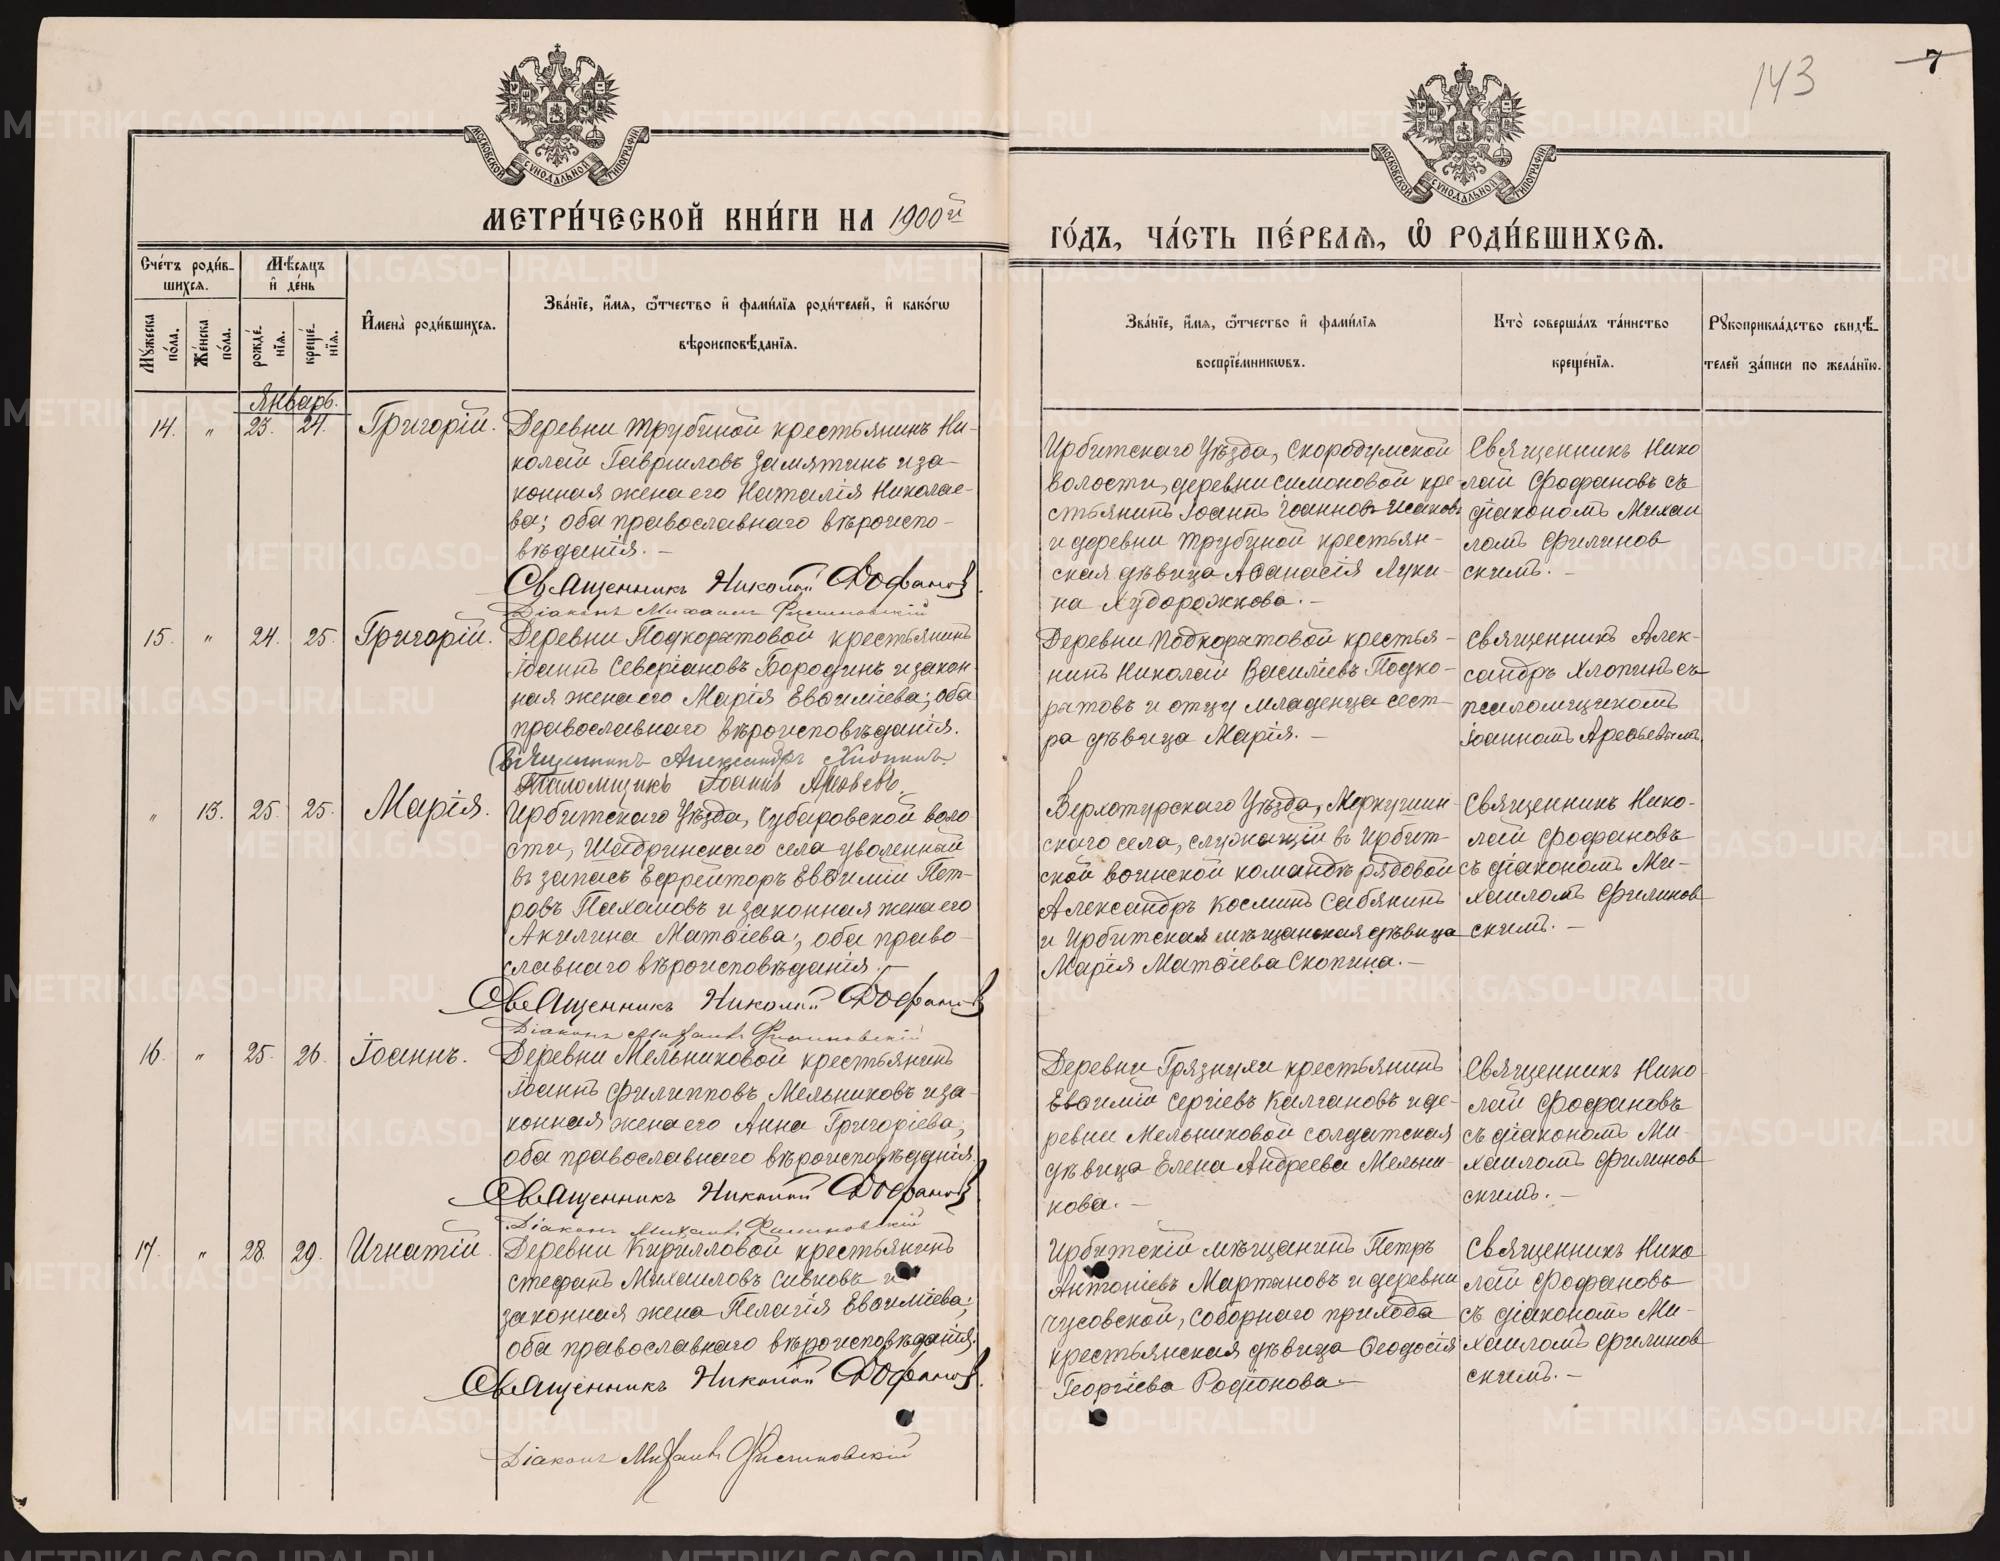 143
7
МОСКОВСКОЙ СѴНОДАЛЬНОЙ ТИПОГРАФІИ
МОСКОВСКОЙ СѴНОДАЛЬНОЙ ТИПОГРАФІИ
МЕТРИ́ЧЕСКОЙ КНИ́ГИ НА 1900й
ГО́ДЪ, ЧА́СТЬ ПЕ́РВАѦ, Ѡ҆ РОДИ́ВШИХСѦ.
Сче́тъ роди́в-
шихсѧ.
Мѣ́сѧцъ
и҆ де́нь
Мꙋ́жеска
по́ла.
Же́нска
по́ла.
рожде́-
нїѧ.
креще́-
нїѧ.
И҆мена̀ роди́вшихсѧ.
Зва́нїе, и҆́мѧ, ѻ҆́тчество и҆ фами́лїѧ роди́телей, и҆ како́гѡ
вѣроисповѣ́данїѧ.
Зва́нїе, и҆́мѧ, ѻ҆́тчество и҆ фами́лїѧ
воспрїе́мникѡвъ.
Кто̀ соверша́лъ та́инство
креще́нїѧ.
Рꙋкоприкла́дство свидѣ́-
телей за́писи по жела́нїю.
Январь.
14. „ 23. 24. Григорій.
Деревни Трубиной крестьянинъ Ни-
колай Гавриловъ Замятинъ и за-
конная жена его Наталія Николае-
ва; оба православнаго вѣроиспо-
вѣданія. —
Священникъ Николай Фофановъ
Діаконъ Михаилъ Филиновскій
Ирбитскаго Уѣзда, Скородумской
волости, деревни Симоновой кре-
стьянинъ Іоаннъ Іоанновъ Исаковъ
и деревни Трубиной крестьян-
ская дѣвица Аѳанасія Луки-
на Худорожкова. —
Священникъ Нико
лай Фофановъ съ
діакономъ Михаи
ломъ Филинов
скимъ. —
15. „ 24. 25. Григорій.
Деревни Подкорытовой крестьянинъ
Іоаннъ Северіановъ Бородинъ и закон
ная жена его Марія Евѳиміева; оба
православнаго вѣроисповѣданія.
Священникъ Александръ Хлопинъ.
Псаломщикъ Іоаннъ Арефьевъ.
Деревни Подкорытовой крестья-
нинъ Николай Василіевъ Подко-
рытовъ и отцу младенца сест-
ра дѣвица Марія. —
Священникъ Алек-
сандръ Хлопинъ съ
псаломщикомъ
Іоанномъ Арефьевымъ.
„ 13. 25. 25. Марія.
Ирбитскаго Уѣзда, Чубаровской воло
сти, Шадринскаго села уволенный
въ запасъ Ефрейторъ Евѳимій Пет-
ровъ Пахомовъ и законная жена его
Акилина Матѳіева; оба право-
славнаго вѣроисповѣданія. —
Священникъ Николай Фофановъ
Діаконъ Михаилъ Филиновскій
Верхотурскаго Уѣзда, Меркушин-
скаго села, служащій въ Ирбит-
ской воинской командѣ рядовой
Александръ Косминъ Сабянинъ
и Ирбитская мѣщанская дѣвица
Марія Матѳіева Скопина. —
Священникъ Нико-
лай Фофановъ
съ діакономъ Ми-
хаиломъ Филинов
скимъ. —
16. „ 25. 26. Іоаннъ.
Деревни Мельниковой крестьянинъ
Іоаннъ Филипповъ Мельниковъ и за-
конная жена его Анна Григоріева,
оба православнаго вѣроисповѣданія.
Священникъ Николай Фофановъ
Діаконъ Михаилъ Филиновскій
Деревни Грязнухи крестьянинъ
Евѳимій Сергіевъ Калгановъ и де-
ревни Мельниковой солдатская
дѣвица Елена Андреева Мельни-
кова. —
Священникъ Нико-
лай Фофановъ
съ діакономъ Ми-
хаиломъ Филинов
скимъ. —
17. „ 28. 29. Игнатій
Деревни Кирилловой крестьянинъ
Стефанъ Михаиловъ Сивковъ и
законная жена Пелагія Евѳиміева;
оба православнаго вѣроисповѣданія.
Священникъ Николай Фофановъ.
Діаконъ Михаилъ Филиновскій
Ирбитскій мѣщанинъ Петръ
Антоніевъ Мартыновъ и деревни
Чусовской, Соборнаго прихода
крестьянская дѣвица Ѳеодосія
Георгіева Родіонова. —
Священникъ Нико
лай Фофановъ
съ діакономъ Ми-
хаиломъ Филинов
скимъ. —
METRIKI.GASO-URAL.RU